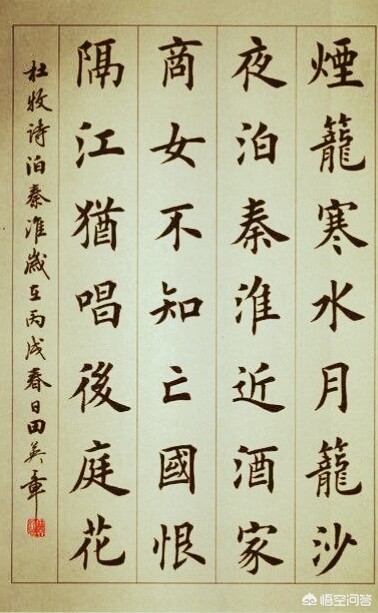 煙籠寒水月籠沙
夜泊秦淮近酒家
商女不知亡國恨
隔江猶唱後庭花
杜牧诗泊秦淮歲在丙戌春日田英章
悟空问答